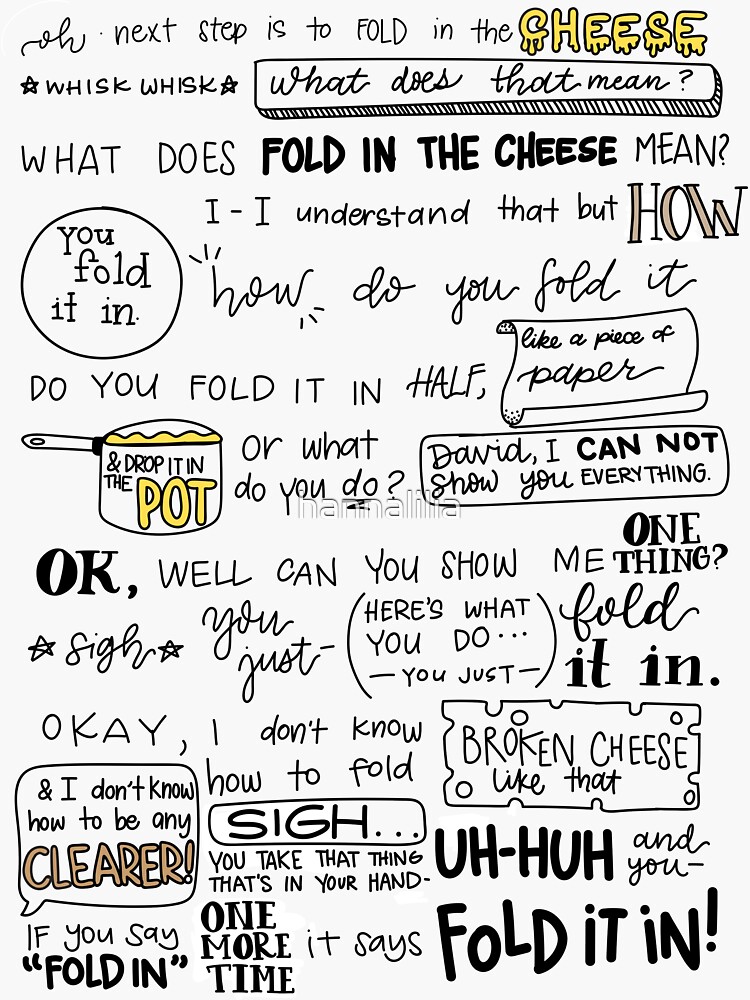 oh · next step is to FOLD in the CHEESE
☆WHISK WHISK☆ what does that mean?
WHAT DOES FOLD IN THE CHEESE MEAN?
You fold it in.
I - I understand that but HOW
how do you fold it
DO YOU FOLD IT IN HALF,
like a piece of
paper
& DROP IT IN
THE POT
or what
do you do?
David, I CAN NOT
Show you EVERYTHING.
OK, WELL CAN YOU SHOW ME ONE THING?
☆sigh☆ you just-
HERE'S WHAT
YOU DO...
— YOU JUST —
fold
it in.
OKAY, I don't know
how to fold
BROKEN CHEESE
like that
& I don't know
how to be any
CLEARER!
SIGH...
YOU TAKE THAT THING
THAT'S IN YOUR HAND-
UH-HUH and
you-
IF YOU SAY
"FOLD IN"
ONE
MORE
TIME
it says
FOLD IT IN!
hannalilia